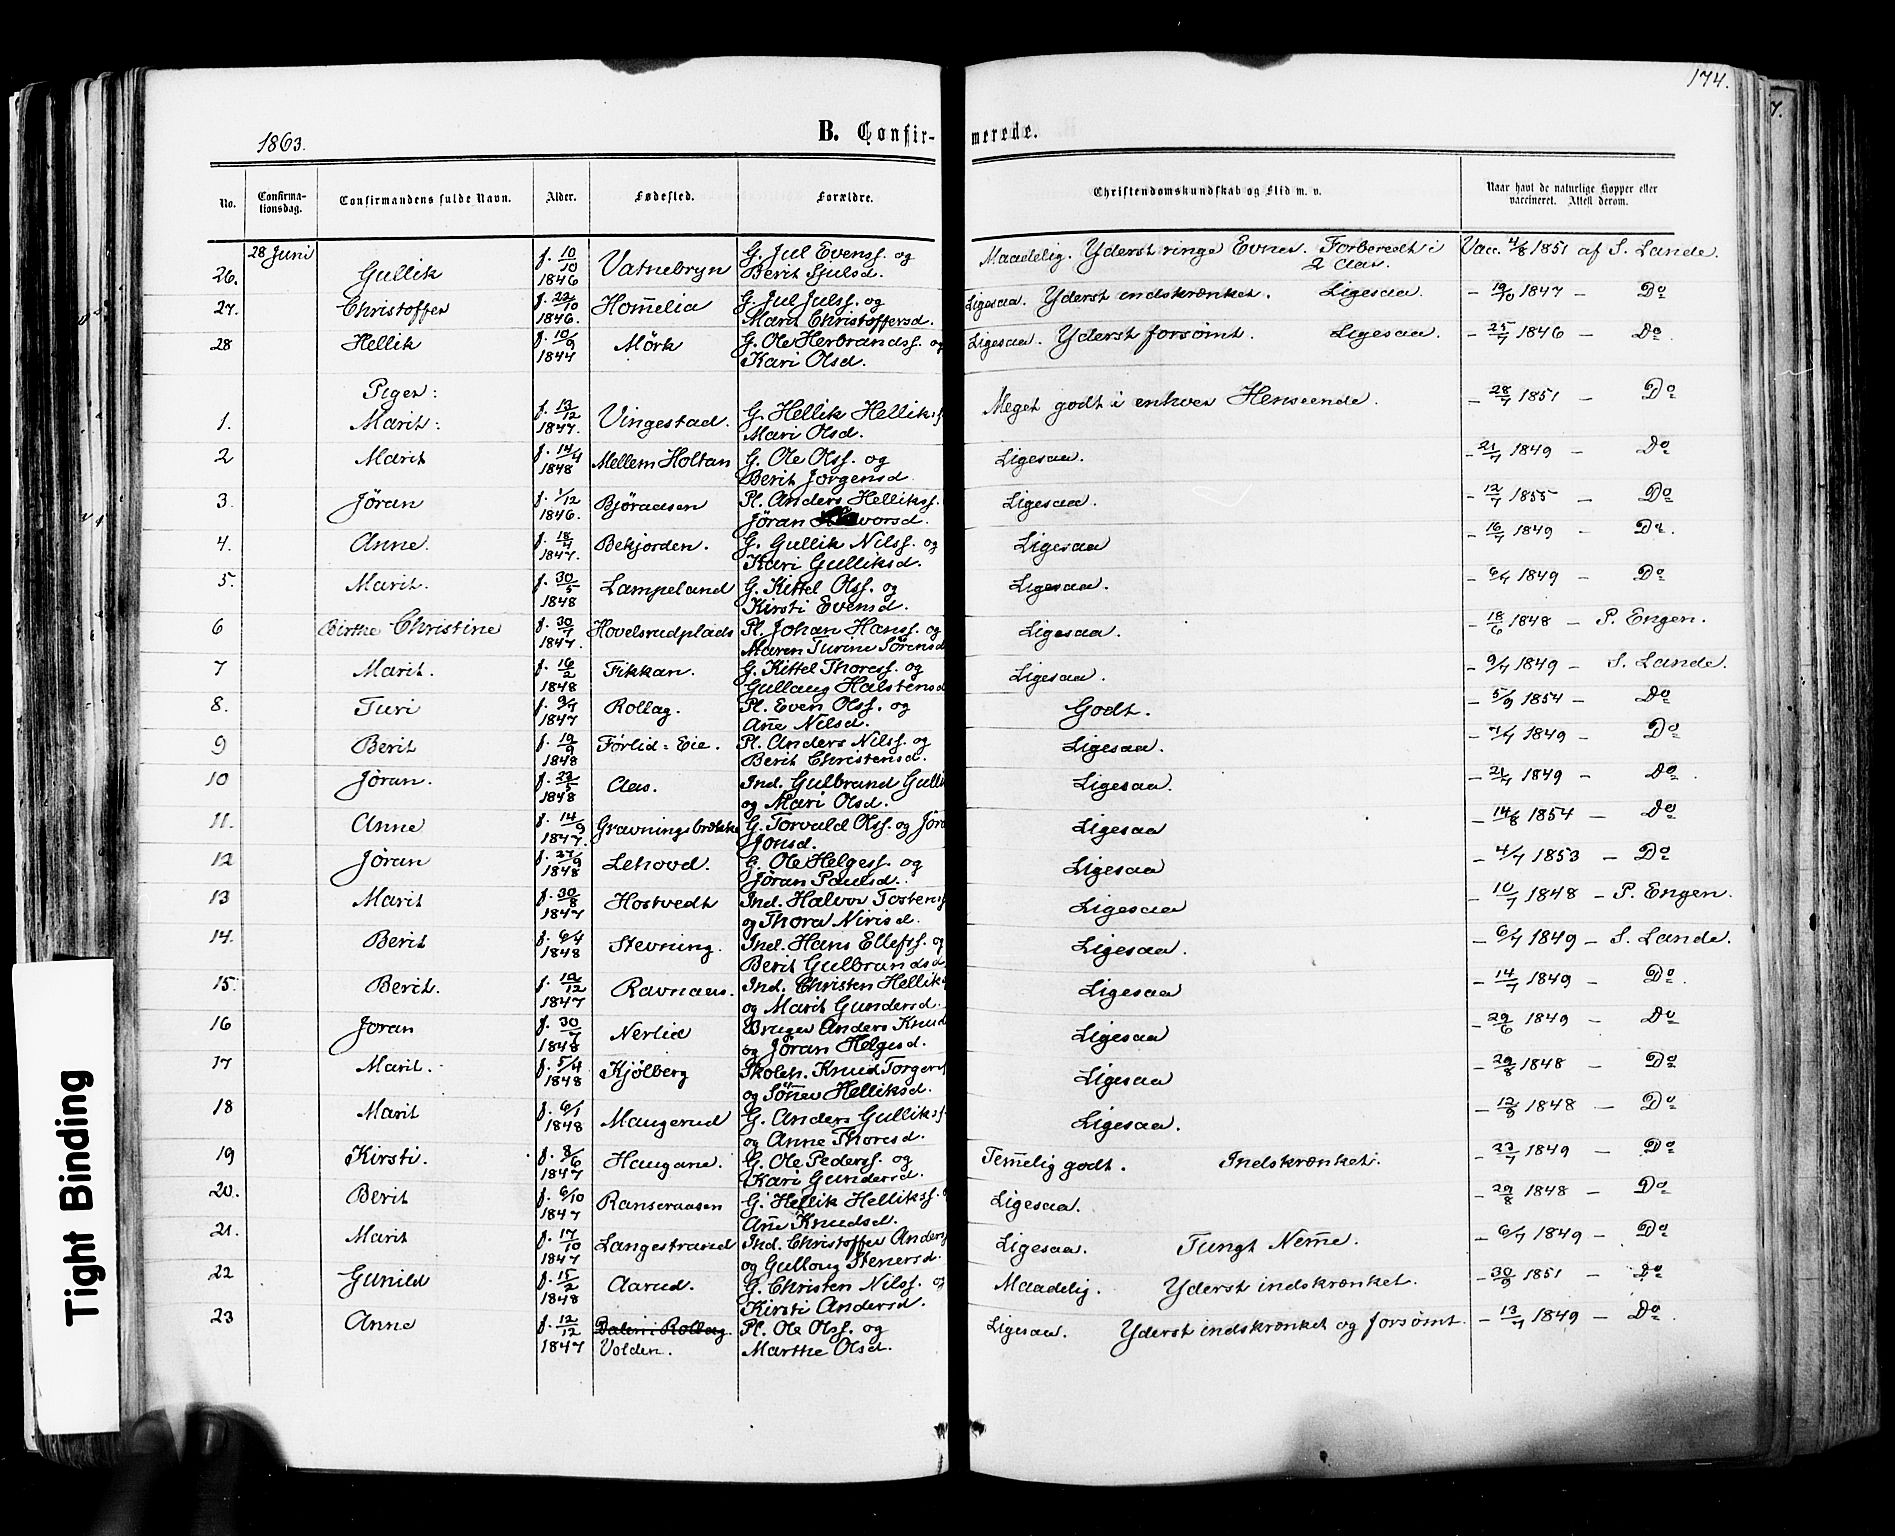 174.
1863.
B. Confir- merede.
No. Confirma-tionsdag. Confirmandens fulde Navn. Alder. Fødested. Forældre. Christendomskundskab og Flid m. v. Naar havt de naturlige Kopper eller vaccineret. Attest derom.
28 Juni
26. Gullik f. 10/10 1846 Vatnebryn G. Jul Evenss. og Berit Sjulsd. Maadelig. Yderst ringe Evner. Forberedt i 2 Aar. Vac. 4/8 1851 af S. Lande.
27. Christoffer f. 22/10 1846. Hom̄elia G. Jul Julss. og Marit Christoffersd. Ligesaa. Yderst indskrænket. Ligesaa. - 19/10 1847 - Do
28 Hellik f. 10/9 1844 Mörk G. Ole Herbrandss. og Kari Olsd. Ligesaa. Yderst forsømt. Ligesaa. - 25/7 1846 - Do.
Piger:
1. Marit: f. 13/12 1847. Vingestad. G. Hellik Hellikss Mari Olsd. Meget godt i enhver Henseende. - 28/7 1851 - Do
2 Marit f. 14/4 1848 Mellem Holtan G. Ole Olss. og Berit Jörgensd. Ligesaa. - 21/7 1849 - Do
3. Jöran f. 1/12 1846. Björaasen Pl. Anders Hellikss. Jöran Halvorsd. Ligesaa. - 12/7 1855 - Do
4. Anne. f. 18/4 1847. Bekjorden. G. Gullik Nilss. og Kari Gulliksd. Ligesaa - 16/7 1849 - Do.
5. Marit. f. 30/5 1848 Lampeland G. Kittel Olss. og Kirsti Evensd. Ligesaa. - 6/7 1849 - Do
6 Birthe Christine f. 30/7 1847. Hovelsrudplads Pl. Johan Hanss. og Maren Turine Sörensd Ligesaa. - 18/6 1848 - P. Engen.
7 Marit. f. 16/2 1848 Fikkan. G. Kittel Thoress. og Gullaug Halstensd Ligesaa. - 9/7 1849 - S. Lande.
8. Turi f. 9/7 1847 Rollag. Pl. Even Olss. og An̄e Nilsd. Godt. - 5/9 1854 - Do
9 Berit f. 19/9 1848 Førlid-Eie. Pl. Anders Nilss. og Berit Christensd. Ligesaa. - 4/7 1849 - Do
10 Jöran. f. 22/5 1848 Aas. Ind. Gulbrand Gulli og Mari Olsd. Ligesaa. - 21/7 1849 - Do.
11. Anne f. 14/9 1847. Gravningsbrække G. Torvald Olss. og Jöra Jonsd. Ligesaa - 14/8 1854 - Do
12 Jöran f. 27/9 1848 Lehovd. G. Ole Helgess. og Jöran Paulsd. Ligesaa - 4/7 1853 - Do
13 Marit f. 30/8 1847 Hostvedt Ind. Halvor Tostenss og Thora Nirisd. Ligesaa - 10/7 1848 - P. Engen.
14. Berit f. 6/4 1848 Stevning. Ind. Hans Ellefss. og Berit Gulbrandsd Ligesaa. - 6/7 1849 - S. Lande.
15. Berit. f. 12/12 1847 Ravnaas. Ind. Christen Helliks og Marit Gundersd. Ligesaa - 14/7 1849 - Do.
16 Joran f. 30/7 1848 Nerlid Bruger Anders Knud og Jöran Helgesd. Ligesaa - 29/6 1849 - Do
17 Marit. f. 5/4 1848 Kjölberg Skoleh. Knud Torgers og Sön̄ev Helliksd. Ligesaa - 29/8 1848 - Do
18 Marit f. 6/1 1848 Maugerud G. Anders Gullikss. og Anne Thoresd. Ligesaa. - 12/9 1848 - Do
19 Kirsti. f. 8/6 1847 Haugane. G. Ole Pederss. og Kari Gundersd. Tem̄elig godt. Indskrænket. - 27/7 1849 - Do
20. Berit f. 6/10 1847 Ranseraasen G. Hellik Hellikss. An̄e Knudsd. Ligesaa. - 29/8 1848 - Do
21. Marit f. 17/10 1847 Langestraud Ind. Christoffer Anders og Gulloug Stenersd. Ligesaa. Tungt Nem̄e. - 6/7 1849 - Do
22 Gunild f. 15/2 1848 Aarud. G. Christen Nilss. og Kirsti Andersd. Maadelig. Yderst indskrænket. - 30/9 1851 - Do
23 Anne f. 12/12 1847 Dalen i Rollag. Volden. Pl. Ole Olss. og Marthe Olsd. Ligesaa. Yderst indskrænket og forsømt. - 13/7 1849 - Do.
Tight Binding